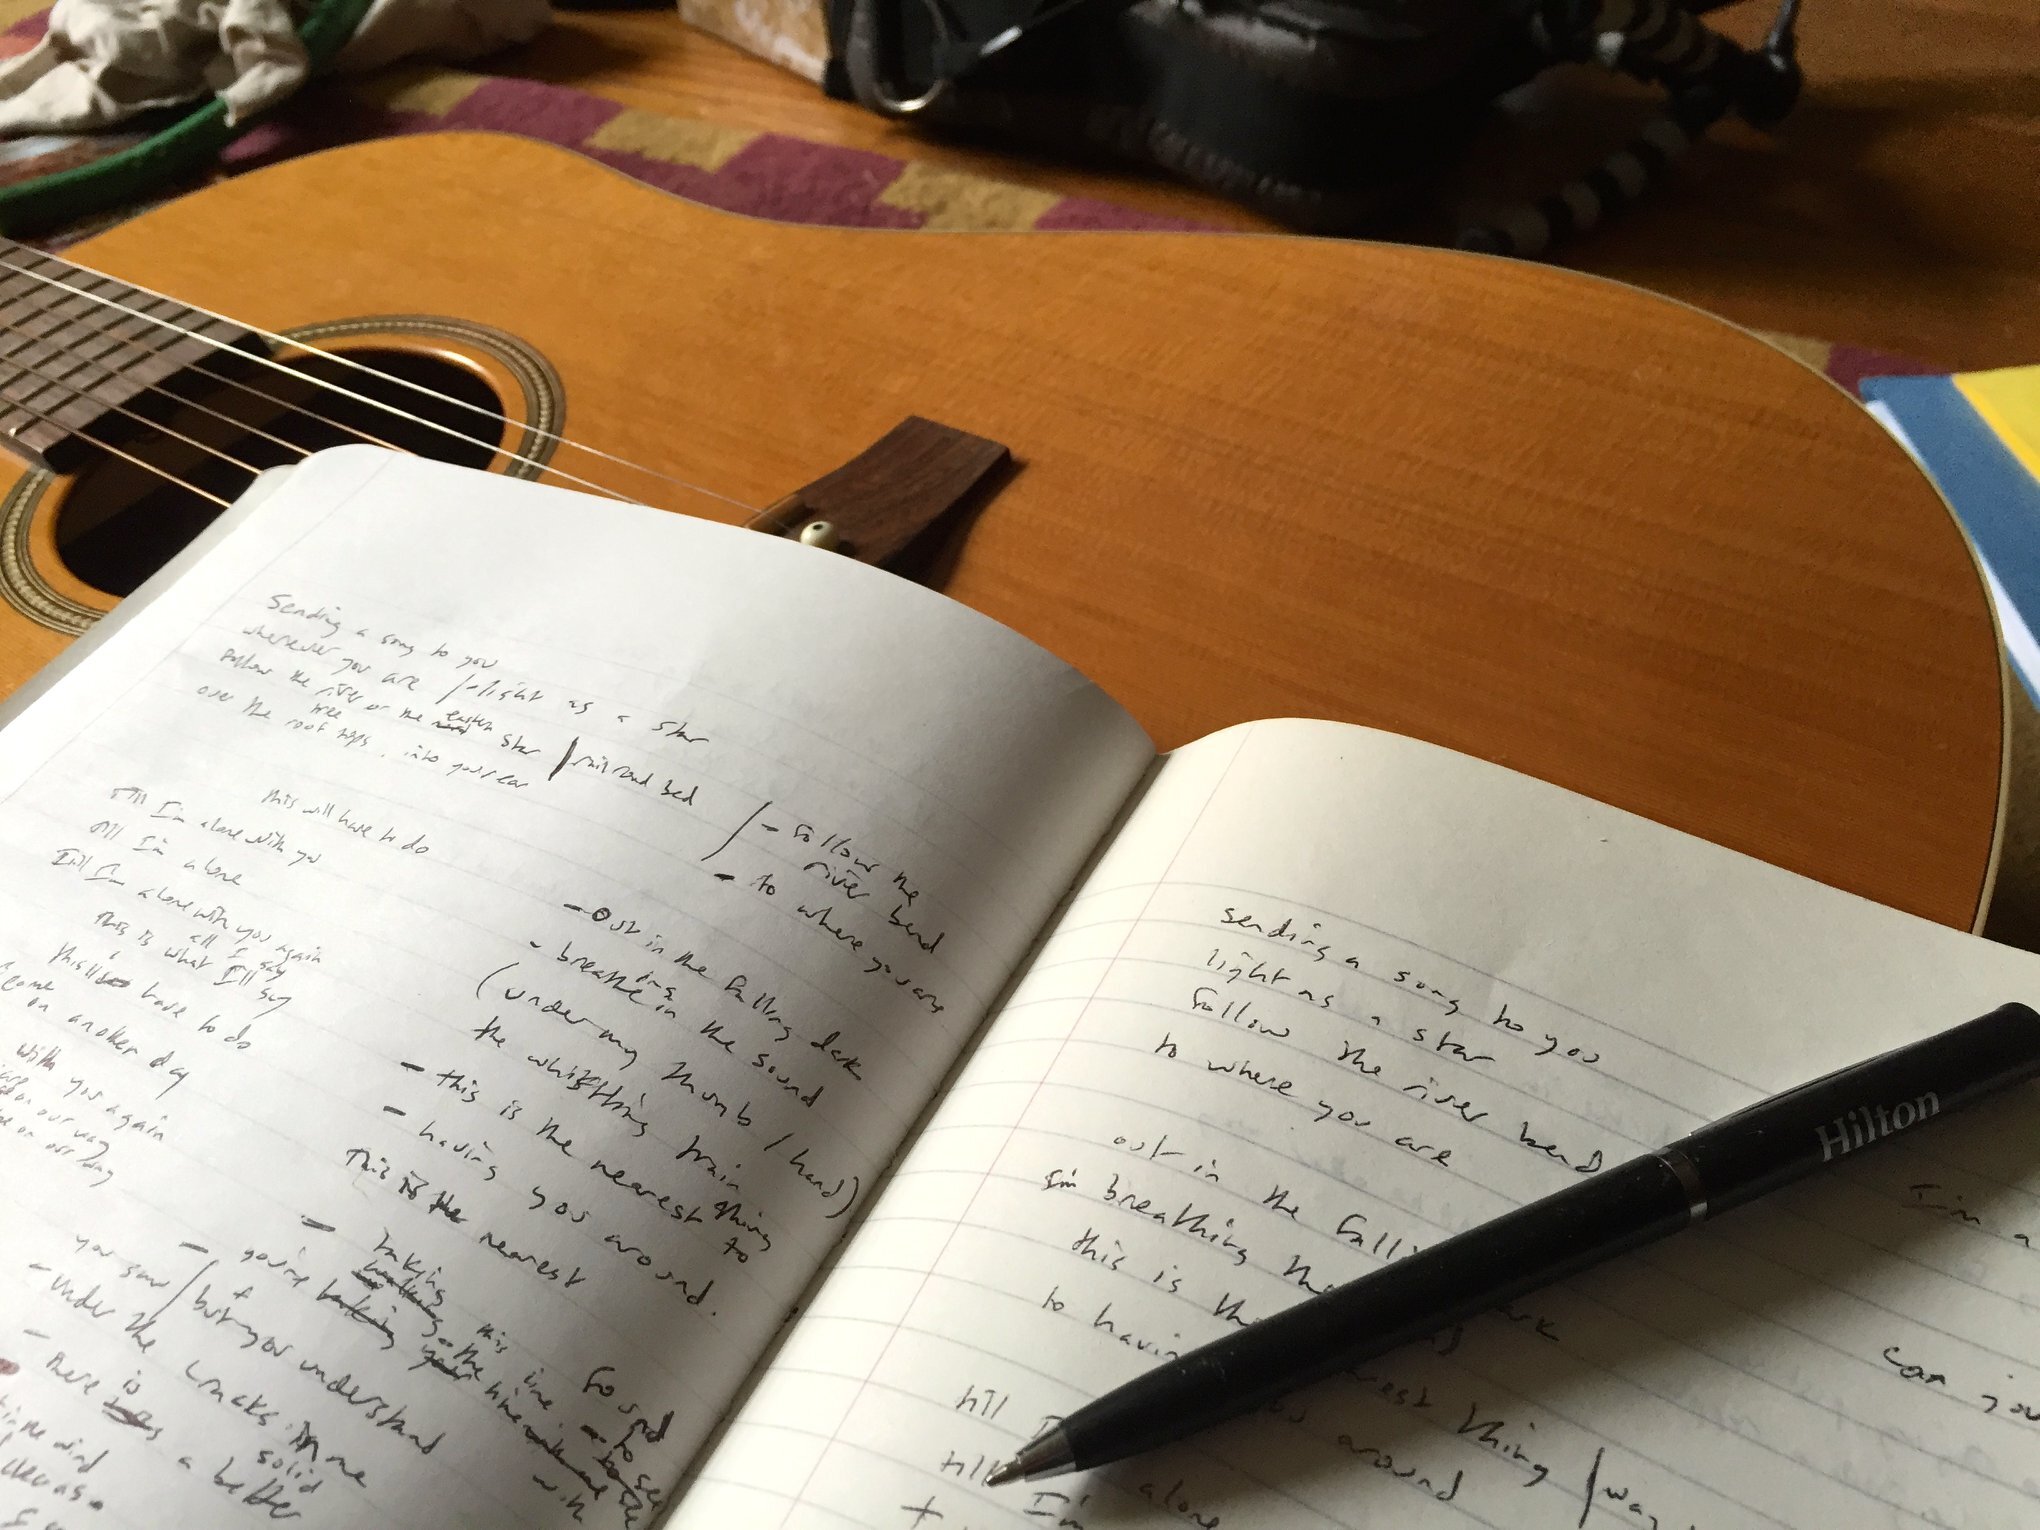 Sending a song to you
wherever you are / light as a star
Follow the river or the eastern star / railroad bed
tree
over the roof tops, into your ear
this will have to do
Till I'm alone with you
till I'm alone
Till I'm alone with you again
all I say
this is what I'll say
this'll have to do
come on another day
with you again
on our way
on our way
- Follow the
river bend
- to where you are
- Out in the falling dark
- breathe in the sound
ing
(under my thumb / hand)
the whistling train
- this is the nearest thing to
- having you around.
This is the nearest
- taking
you're
this line.
you saw / but you understand
- under the cracks in me
- there is a better
solid
Found
to see
with
sending a song to you
light as a star
Follow the river bend
to where you are
out in the falli
I'm breathing
this is the
to havin
rest thing / way
around
till
till
alone
I'm
I'm a
can you
Hilton